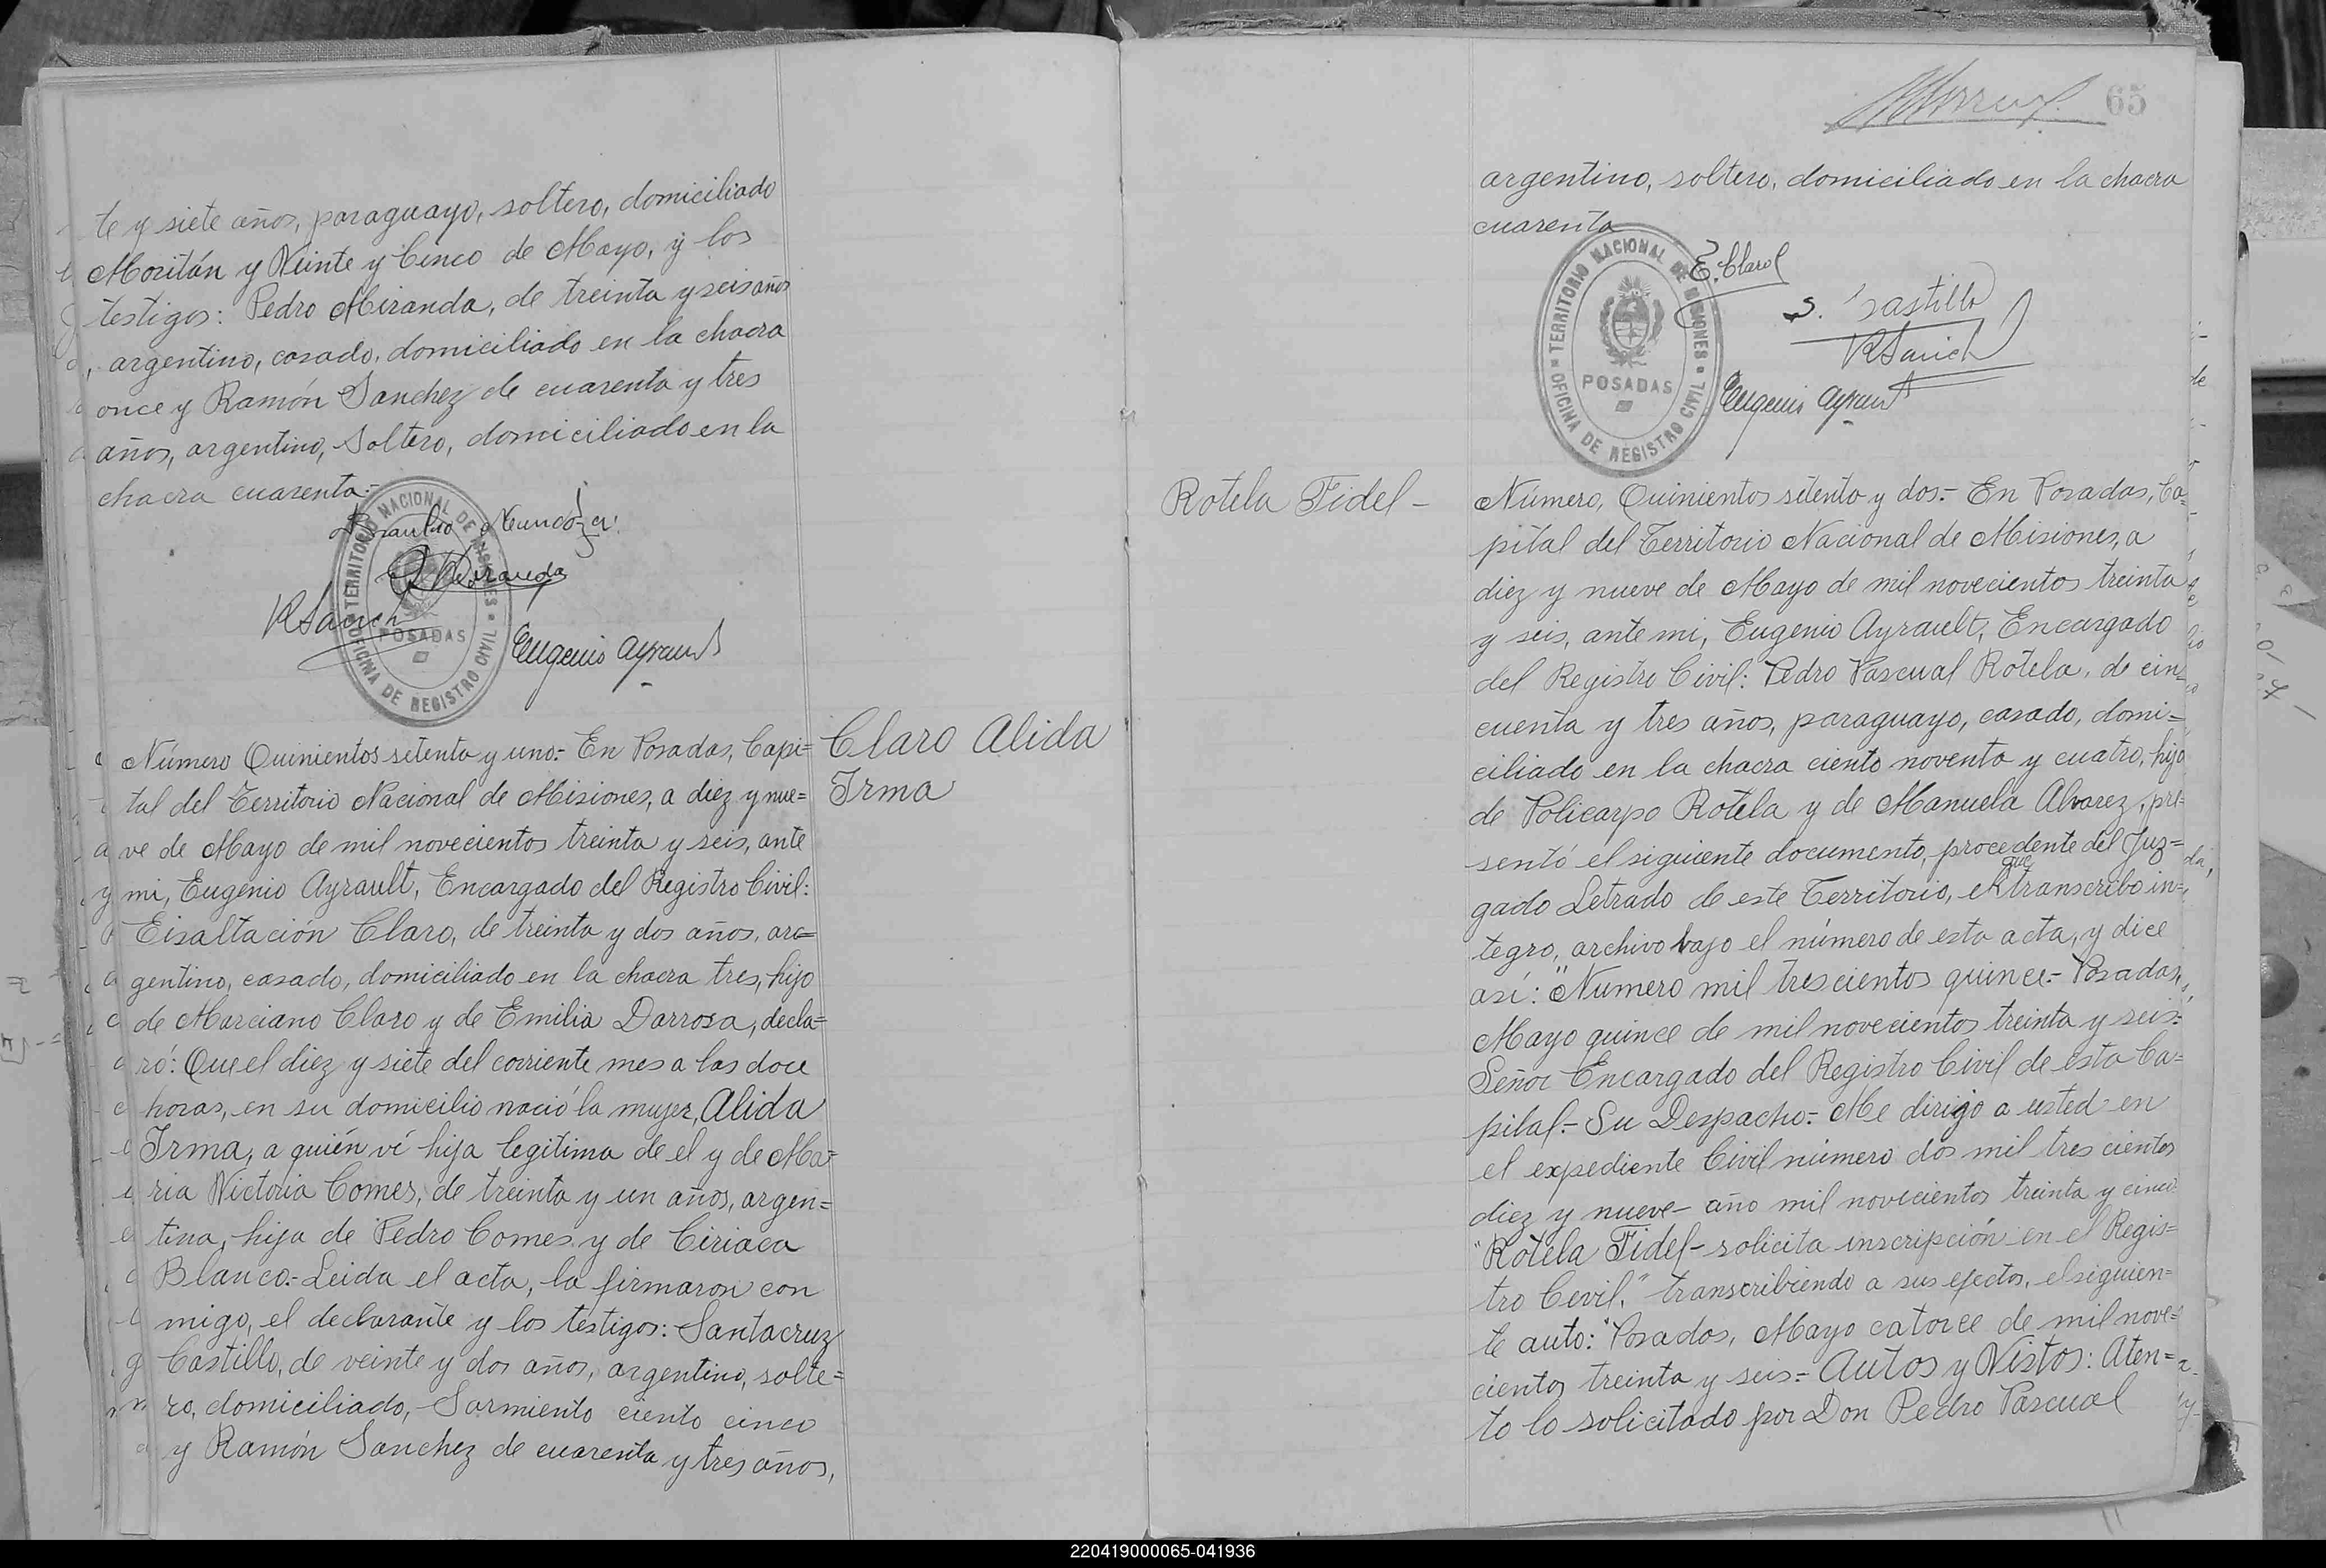 te y siete años, paraguayo, soltero, domiciliado
Moritán y Veinte y Cinco de Mayo, y los
testigos: Pedro Miranda, de treinta y seis años
, argentino, casado, domiciliado en la chacra
once y Ramón Sanchez de cuarenta y tres
años, argentino, Soltero, domiciliado en la
chacra cuarenta.-
TERRITORIO NACIONAL DE MISIONES
POSADAS
OFICINA DE REGISTRO CIVIL
Miranda
RSanch
Eugenio Ayrault
Claro Alida
Irma
Número Quinientos setenta y uno.- En Posadas, Capi=
tal del Territorio Nacional de Misiones, a diez y nue=
ve de Mayo de mil novecientos treinta y seis, ante
mi, Eugenio Ayrault, Encargado del Registro Civil:
Eisaltación Claro, de treinta y dos años, arc=
gentino, casado, domiciliado en la chacra tres, hijo
de Marciano Claro y de Emilia Darrosa, decla=
ró: Que el diez y siete del corriente mes a las doce
horas, en su domicilio nació la mujer, Alida
Irma, a quién ví hija legitima de el y de Ma=
ria Victoria Comes, de treinta y un años, argen=
tina, hija de Pedro Comes y de Ciriaca
Blanco.- Leida el acta, la firmaron con
migo, el declarante y los testigos: Santacruz
Castillo, de veinte y dos años, argentino, solte=
ro, domiciliado, Sarmiento ciento cinco
y Ramón Sanchez de cuarenta y tres años,
65
argentino, soltero, domiciliado en la chacra
cuarenta
TERRITORIO NACIONAL DE MISIONES
POSADAS
OFICINA DE REGISTRO CIVIL
E. Claro
S. Castillo
RSanch
Eugenio Ayrault
Rotela Fidel -
Número, Quinientos setenta y dos.- En Posadas, Ca=
pital del Territorio Nacional de Misiones, a
diez y nueve de Mayo de mil novecientos treinta
y seis, ante mi, Eugenio Ayrault, Encargado
del Registro Civil: Pedro Pascual Rotela, de cin=
cuenta y tres años, paraguayo, casado, domi=
ciliado en la chacra ciento noventa y cuatro, hijo
de Policarpo Rotela y de Manuela Alvarez, pre=
sentó el siguiente documento, procedente del Juz=
gado Letrado de este Territorio, que transcribo in=
tegro, archivo bajo el número de esta acta, y dice
así: "Numero mil trescientos quince.- Posadas,
Mayo quince de mil novecientos treinta y seis.-
Señor Encargado del Registro Civil de esta Ca=
pital.- Su Despacho.- Me dirigo a usted en
el expediente Civil número dos mil tres cientos
diez y nueve - año mil novecientos treinta y cinco
"Rotela Fidel - solicita inscripción en el Regis=
tro Civil," transcribiendo a sus efectos, el siguien=
te auto: "Posadas, Mayo catorce de mil nove=
cientos treinta y seis.- Autos y Vistos: Aten=
to lo solicitado por Don Pedro Pascual
220419000065-041936